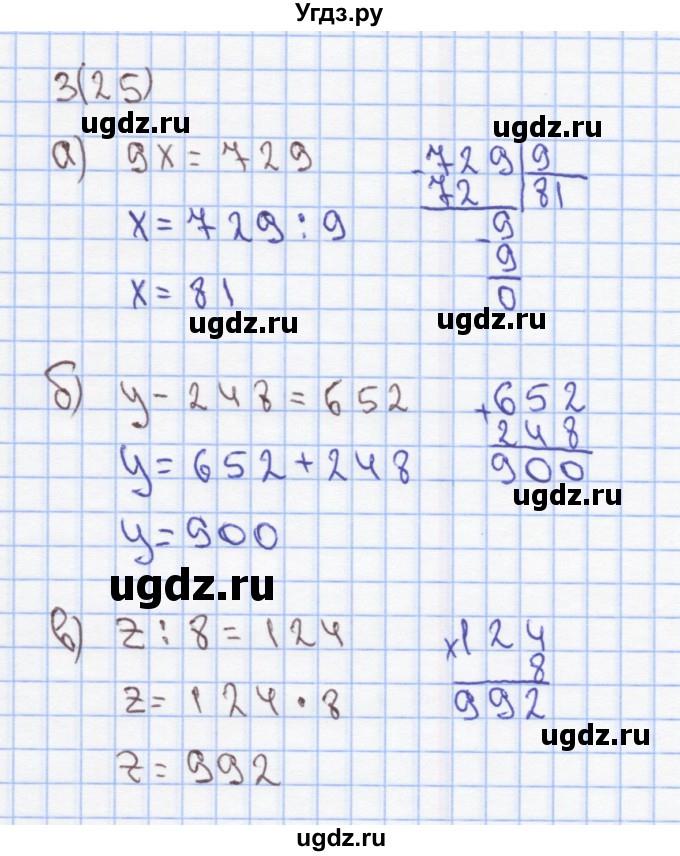 Угдз.ру
3(25)
ugdz.ru
ugdz.ru
а) 9x = 729
729 9
72 81
x = 729 : 9
9
9
x = 81
0
ugdz.ru
ugdz.ru
б) y - 248 = 652
+ 652
248
y = 652 + 248
900
ugdz.ru
y = 900
ugdz.ru
в) z : 8 = 124
x 124
8
z = 124 · 8
992
ugdz.ru
z = 992
ugdz.ru